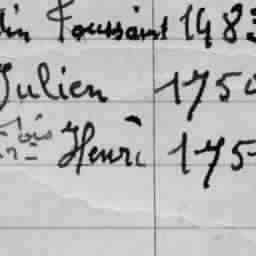 in Toussaint 1483
Julien 1750
Henri 175